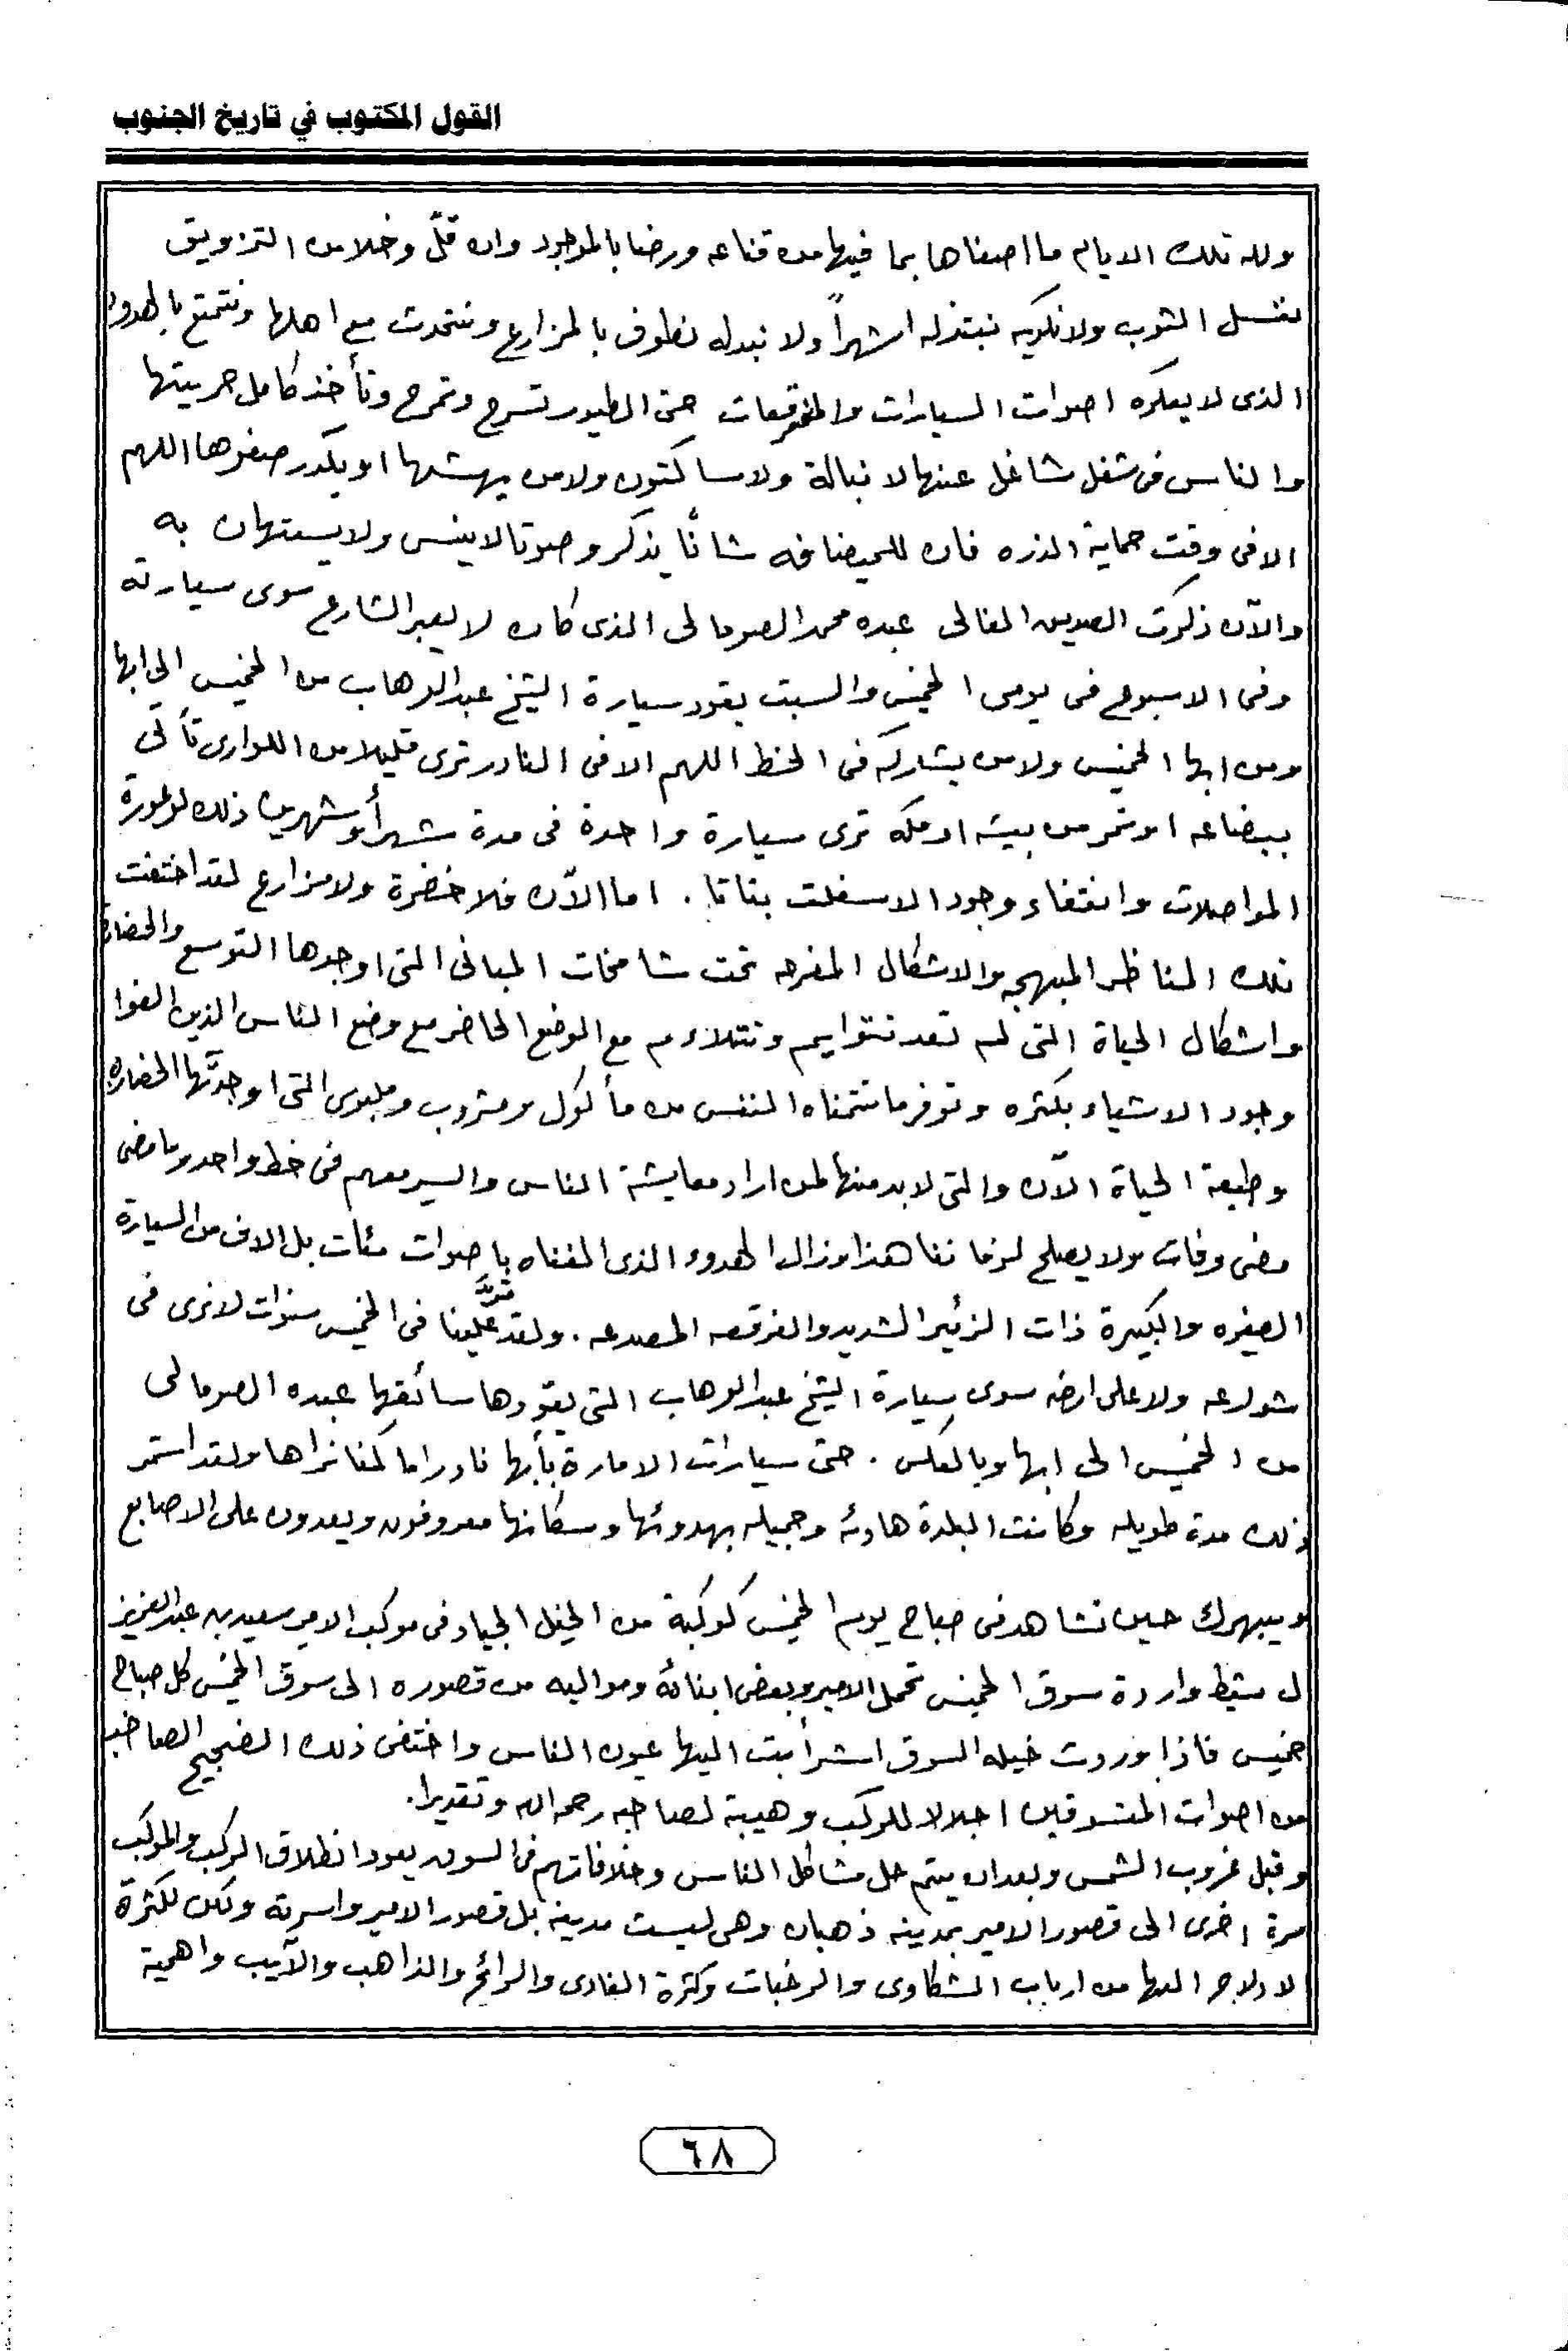 القول المكتوب في تاريخ الجنوب
ولله تلك الايام ما اصفاها بما فيها من قناعه ورضا بالموجود وان قلّ وخلا من التزويق
نغسل الثوب ولا نكويه نبتذله اشهراً ولا نبدله نطوف بالمزارع ونتحدث مع اهلها ونتمتع بالهدوء
الذى لا يعكره اصوات السيارات والمفرقعات حتى الطيور تسرح وتمرح وتأخذ كامل حريتها
والناس فى شغل شاغل عنها لا نبالة ولا ساكتون ولا من يهشها او يكدر صفوها اللهم
الا فى وقت حماية الذره فان للميضافه شأنًا يذكر وصوتا لا ينسى ولا يستهان به
والآن ذكرت الصديق الغالى عبده محمد الصومالى الذى كان لا يعبر الشارع سوى سيارته
وفى الاسبوع فى يومى الخميس والسبت يقود سيارة الشيخ عبدالوهاب من الخميس الى ابها
ومن ابها الخميس ولا من يشاركه فى الخط اللهم الا فى النادر ترى قليلا من اللوارى تأتى
ببضاعه او تمر من بيشه او مكه ترى سيارة واحدة فى مدة شهر أو شهرين ذلك لوعورة
المواصلات وانتفاء وجود الاسفلت بتاتا. اما الآن فلا خضرة ولا مزارع لقد اختفت
تلك المناظر المبهجه والاشكال المفرحه تحت شامخات المبانى التى اوجدها التوسع والحضارة
واشكال الحياة التى لم تعد تتوايم وتتلاءم مع الوضع الحاضر مع وضع الناس الذين الفوا
وجود الاشياء بكثره وتوفر ما تتمناه النفس من مأكول ومشروب وملبوس التى اوجدتها الحضاره
وطبيعة الحياة الآن والتى لا بد منها لمن اراد معايشة الناس والسير معهم فى خط واحد وما مضى
مضى وفات ولا يصلح لزماننا هذا وزال الهدوء الذى الفناه باصوات مئات بل الاف من السيارة
الصغيره والكبيرة ذات الزئير الشديد والفرقعه المصدعه. ولقد تمرّ علينا فى الخميس سنوات لا نرى فى
شوارعه ولا على ارضه سوى سيارة الشيخ عبدالوهاب التى يقودها سائقها عبده الصومالى
من الخميس الى ابها وبالعكس. حتى سيارات الامارة بأبها نادراً ما كنا نراها ولقد استمر
ذلك مدة طويله وكانت البلدة هادئه وجميله بهدوئها وسكانها معروفون ويعدون على الاصابع
ويبهرك حين تشاهد فى صباح يوم الخميس كوكبة من الخيل الجياد فى موكب الامير سعيد بن عبدالعزيز
ل مشيط واردة سوق الخميس تحمل الامير وبعض ابنائه ومواليه من قصوره الى سوق الخميس كل صباح
خميس فاذا وردت خيله السوق اشرأبت اليها عيون الناس واختفى ذلك الضجيج الصاخب
من اصوات المتسوقين اجلالا للركب وهيبة لصاحبه رحمه الله وتقديرا.
وقبل غروب الشمس وبعد ان يتم حل مشاكل الناس وخلافاتهم فى السوق يعود انطلاق الركب والموكب
مرة اخرى الى قصور الامير بمدينه ذهبان وهى ليست مدينه بل قصور الامير واسرته ولكن لكثرة
الادلاج اليها من ارباب الشكاوى والرغبات وكثرة الغادى والرائح والذاهب والآيب واهمية
٦٨